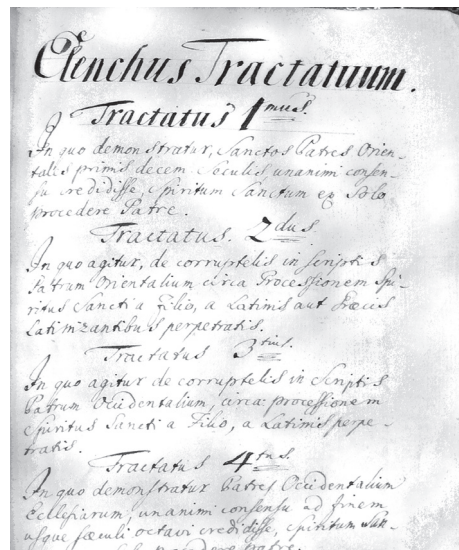 Elenchus Tractatuum.
Tractatus 1mus.
In quo demonstratur, Sanctos Patres Orien-
tales primis decem Soeculis, unanimi consen-
su credidisse, Spiritum Sanctum ex Solo
procedere Patre.
Tractatus. 2dus.
In quo agitur, de corruptelis in Scriptis
Patrum Orientalium circa Processionem Spi-
ritus Sancti a Filio, a Latinis aut Græcis
Latinizantibus perpetratis.
Tractatus 3tius.
In quo agitur de corruptelis in Scriptis
Patrum Occidentalium, circa processionem
Spiritus Sancti a Filio, a Latinis perpe-
tratis.
Tractatus 4tus.
In quo demonstratur Patres Occidentalium
Ecclesiarum, unanimi consensu ad finem
usque sæculi octavi credidisse, spiritum San-
procedere patre.